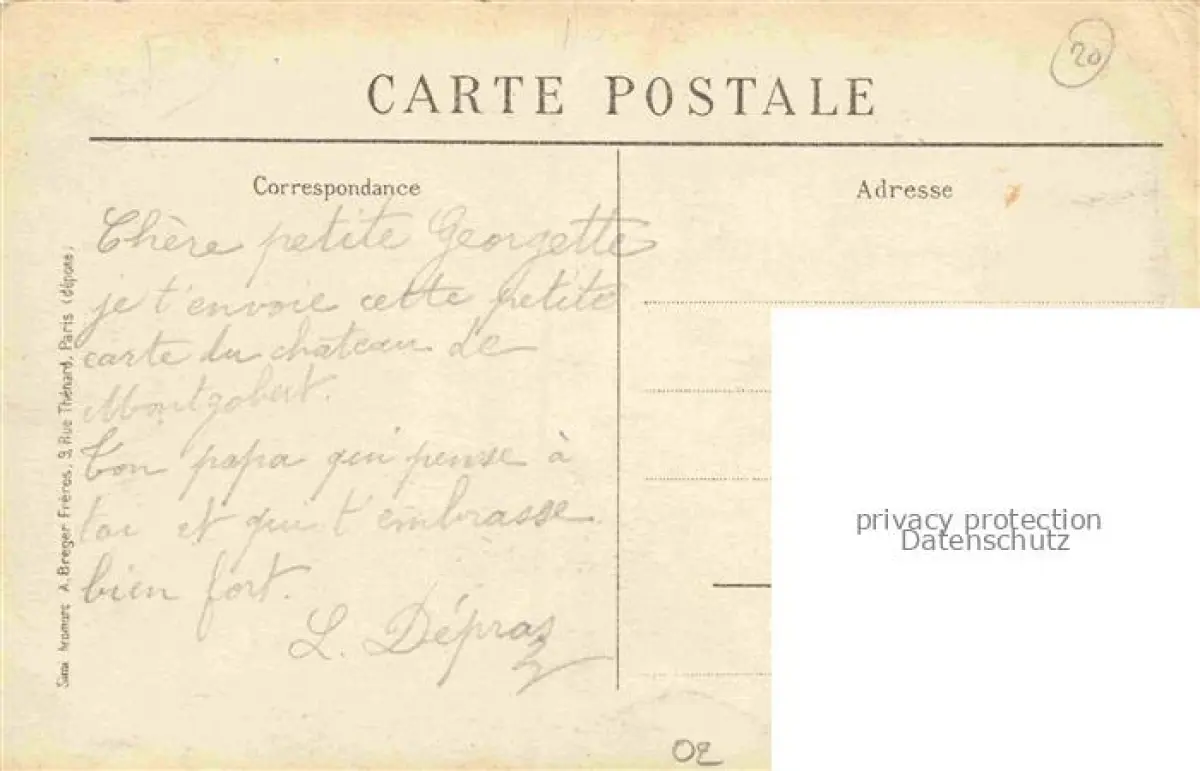 20
CARTE POSTALE
Correspondance
Adresse
Chère petite Georgette
je t'envoie cette petite
carte du château de
Montgobert.
Ton papa qui pense à
toi et qui t'embrasse
bien fort.
L. Dépraz
A. Breger Frères, 9, Rue Thénard, Paris (déposé)
privacy protection
Datenschutz